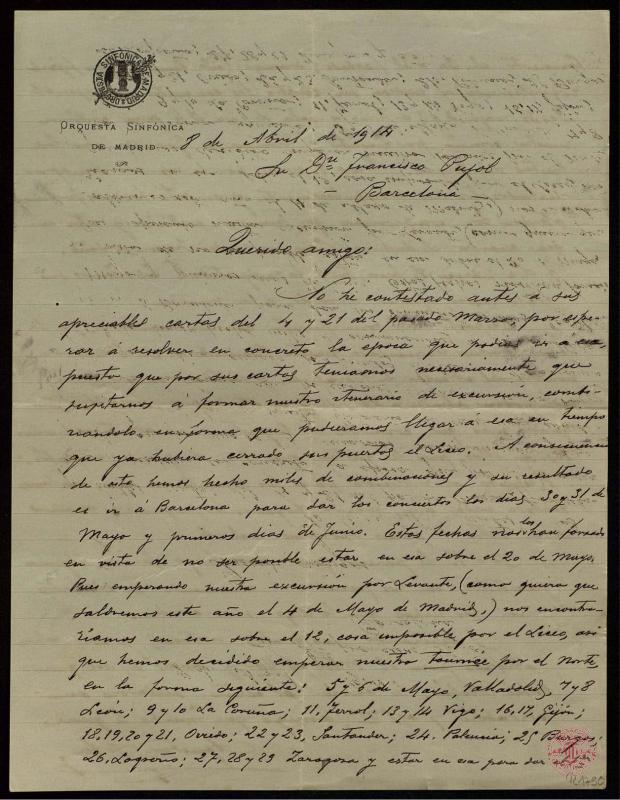 ORQUESTA SINFÓNICA DE MADRID
ORQUESTA SINFÓNICA
DE MADRID
8 de Abril de 1914
Sr Dn Francisco Pujol
Barcelona
Querido amigo:
No he contestado antes á sus
apreciables cartas del 4 y 21 del pasado Marzo, por espe-
rar á resolver en concreto la epoca que podria ir a esa,
puesto que por sus cartas teniamos necesariamente que
sujetarnos á formar nuestro itenerario de excursión, combi-
nandolo en forma que pudieramos llegar á esa en tiempo
que ya hubiera cerrado sus puertas el Liceo. A consecuencia
de esto hemos hecho miles de combinaciones y su resultado
es ir á Barcelona para dar los conciertos los dias 30 y 31 de
Mayo y primeros dias de Junio. Estas fechas nos las han forzado
en vista de no ser posible estar en esa sobre el 20 de Mayo.
Pues empezando nuestra excursión por Levante, (como quiera que
saldremos este año el 4 de Mayo de Madrid,) nos encontra-
riamos en esa sobre el 12, cosa imposible por el Liceo, asi
que hemos decidido empezar nuestra tournée por el Norte,
en la forma siguiente: 5 y 6 de Mayo, Valladolid, 7 y 8
León; 9 y 10 La Coruña; 11, Ferrol; 13 y 14 Vigo; 16, 17, Gijón;
18, 19, 20 y 21, Oviedo; 22 y 23, Santander; 24. Palencia; 25 Burgos;
26, Logroño; 27, 28 y 29 Zaragoza y estar en esa para dar